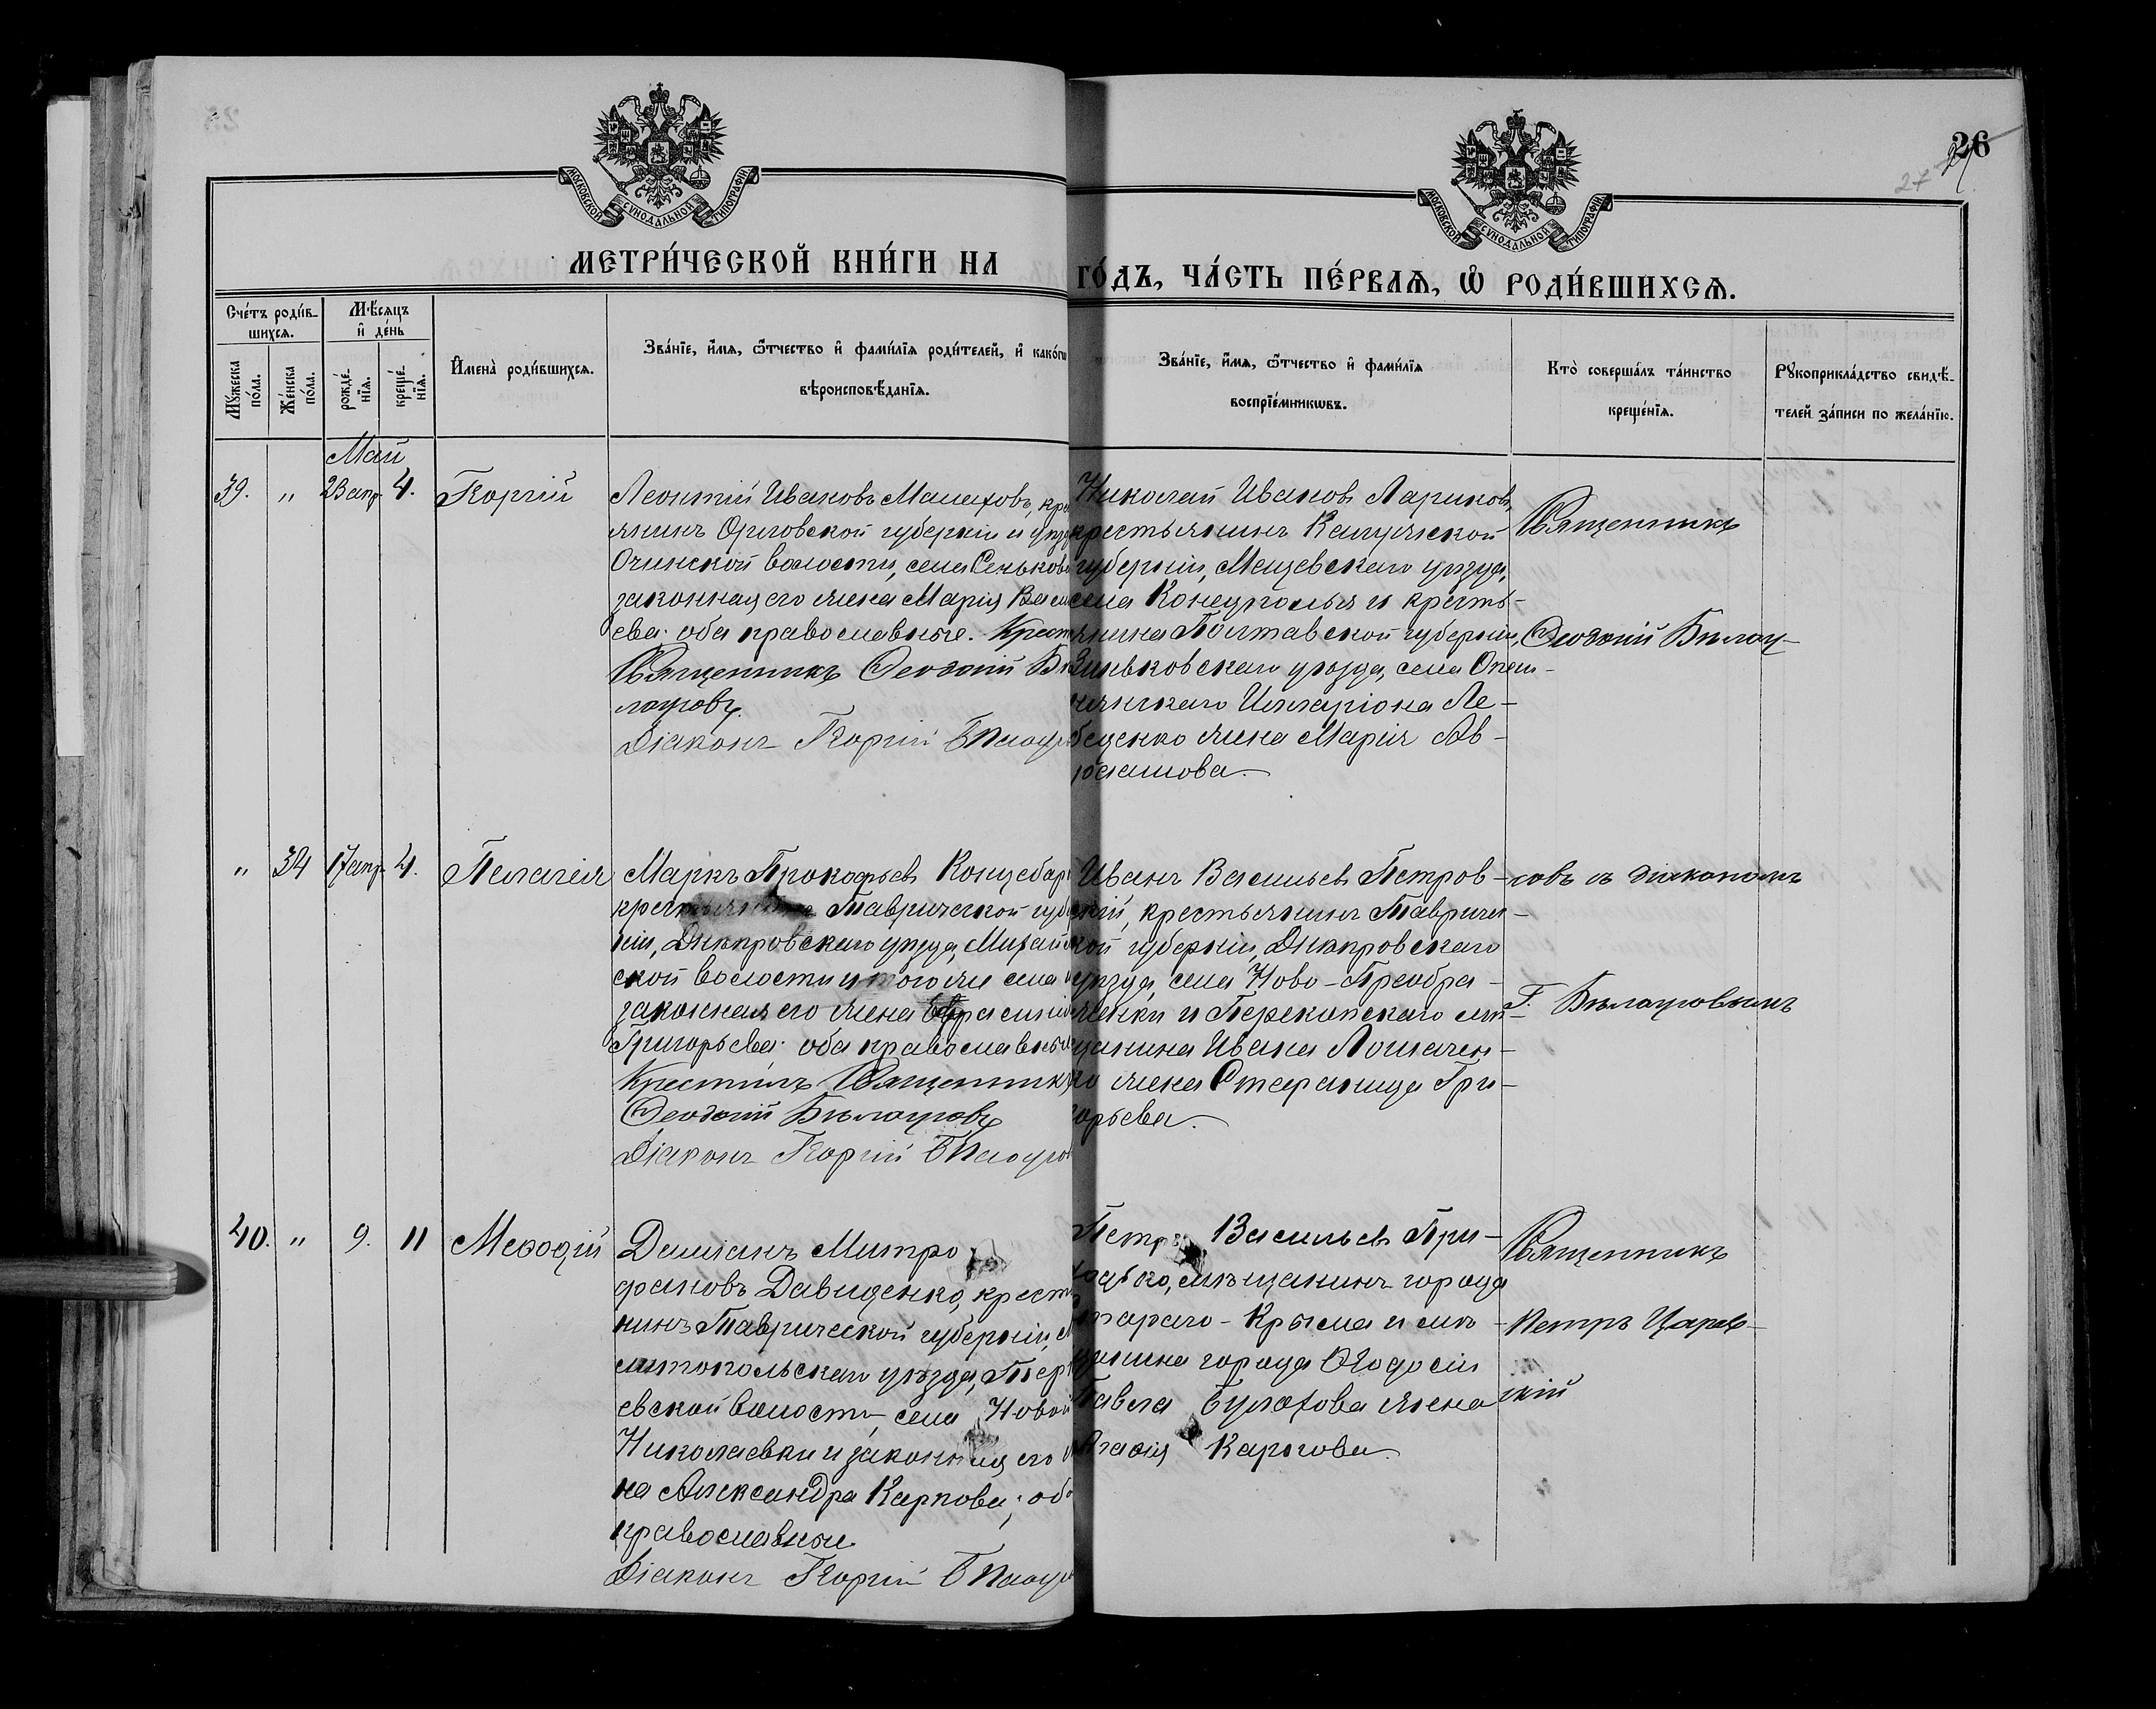 МОСКОВСКОЙ СѴНОДАЛЬНОЙ ТИПОГРАФІИ
МОСКОВСКОЙ СѴНОДАЛЬНОЙ ТИПОГРАФІИ
26
27
МЕТРИ́ЧЕСКОЙ КНИ́ГИ НА
ГО́ДЪ, ЧА́СТЬ ПЕ́РВАѦ, Ѡ҆ РОДИ́ВШИХСѦ.
Сче́тъ роди́в-
шихсѧ.
Мѣ́сѧцъ
и҆ де́нь
Мꙋ́жеска
по́ла.
Же́нска
по́ла.
рожде́-
нїѧ.
креще́-
нїѧ.
И҆мена̀ роди́вшихсѧ.
Зва́нїе, и҆́мѧ, ѻ҆́тчество и҆ фами́лїѧ роди́телей, и҆ како́гѡ
вѣроисповѣ́данїѧ.
Зва́нїе, и҆́мѧ, ѻ҆́тчество и҆ фами́лїѧ
воспрїе́мникѡвъ.
Кто̀ соверша́лъ та́инство
креще́нїѧ.
Рꙋкоприкла́дство свидѣ́-
телей за́писи по жела́нїю.
Май
39. " 23 апр. 4. Георгій
Леонтій Ивановъ Малаховъ, кре
янинъ Орловской губерніи и уѣзд
села Сеньков
законная его жена Марія Васи
ева: оба православные. Крест
Священникъ Ѳеодосій Бѣ
лоусовъ.
Діаконъ Георгій Бѣлоус
Николай Ивановъ Лариковъ,
крестьянинъ Калужской
губерніи, Мещевскаго уѣзда,
села Конецполья и кресть-
янина Полтавской губерніи,
Зиньковскаго уѣзда, села Опош-
нянскаго Илларіона Ле-
беденко жена Марія Ав-
Священникъ
Ѳеодосій Бѣлоу-
" 34 17 апр. 4. Пелагія
Маркъ Прокофьевъ Коцебар
Таврической губе
ніи, Днѣпровскаго уѣзда, Михай
ской волости и того же села
законная его жена Евфросинія
Григорьева: оба православные
Крестилъ Священникъ
Ѳеодосій Бѣлоусовъ
Діаконъ Георгій Бѣлоусов
Иванъ Васильевъ Петров-
скій, крестьянинъ Тавричес-
кой губерніи, Днѣпровскаго
уѣзда, села Ново-Преобра-
женки и Перекопскаго мѣ-
щанина Ивана Логачен-
ко жена Стефанида Гри-
горьева.
совъ съ діакономъ
Г. Бѣлоусовымъ
40. " 9. 11 Меѳодій
Даміанъ Митро
фановъ Давиденко, крест
нинъ Таврической губерніи, М
литопольскаго уѣзда,
евской волости села Новой
Николаевки и законная его
на Александра Карпова; об
православные
Діаконъ Георгій Бѣлоус
Петръ Васильевъ При-
ходько, мѣщанинъ города
Стараго-Крыма и мѣ-
щанина города Ѳеодосіи
Павла Булахова жена
Агаѳія Карпова.
Священникъ
Петръ Царев-
скій